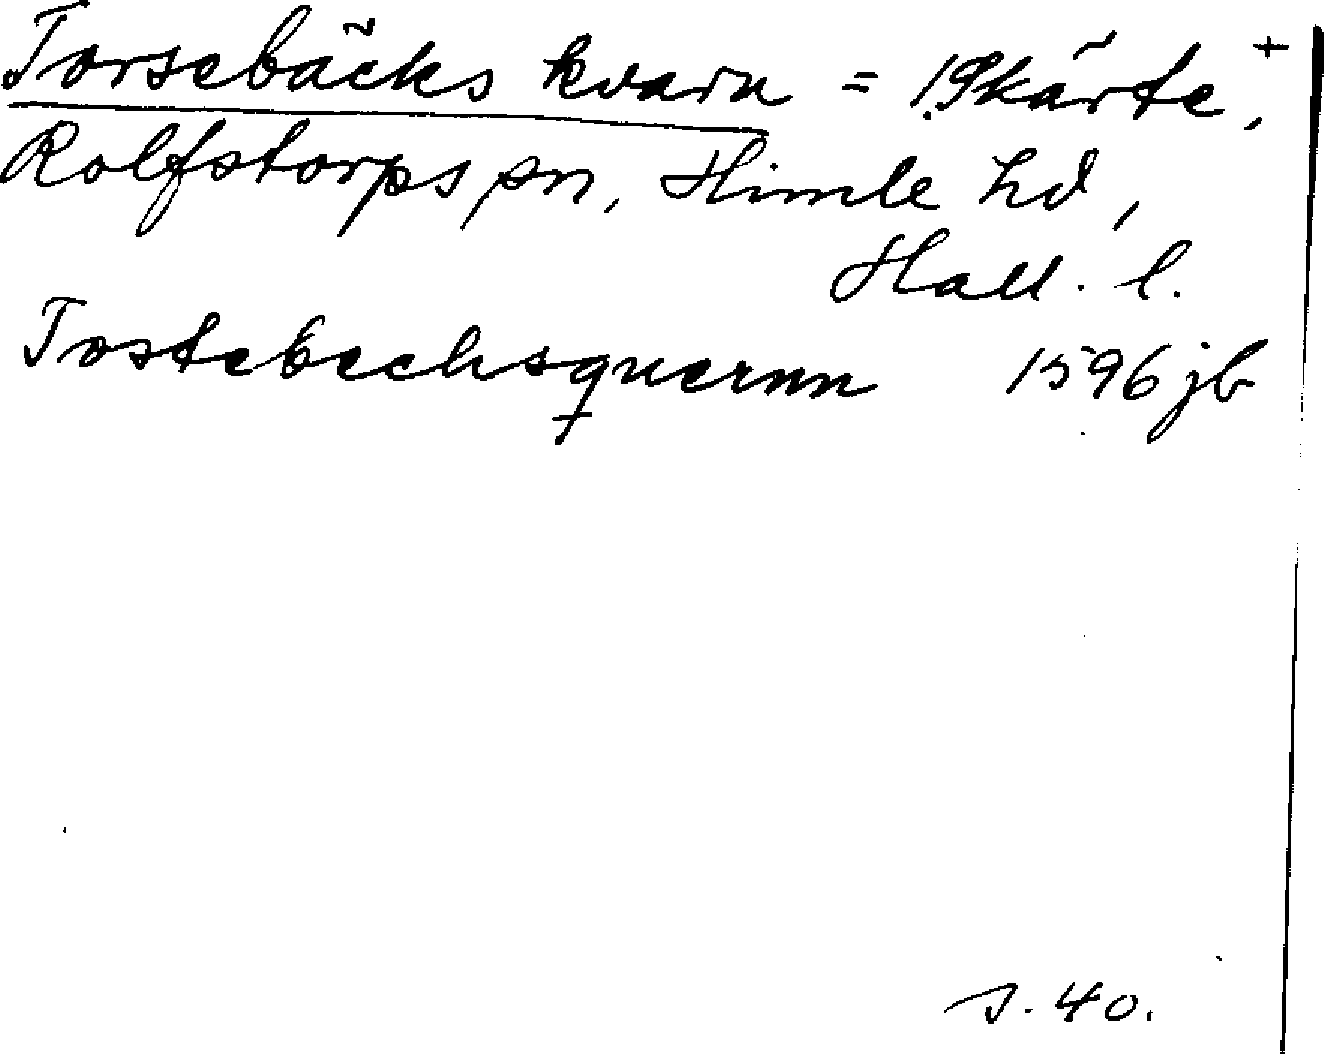 Torsebäcks kvarn = 1 Skärte, +
Rolfstorps sn, Himle hd,
Hall. l.
Tostebechsquernn 1596 jb
s. 40.